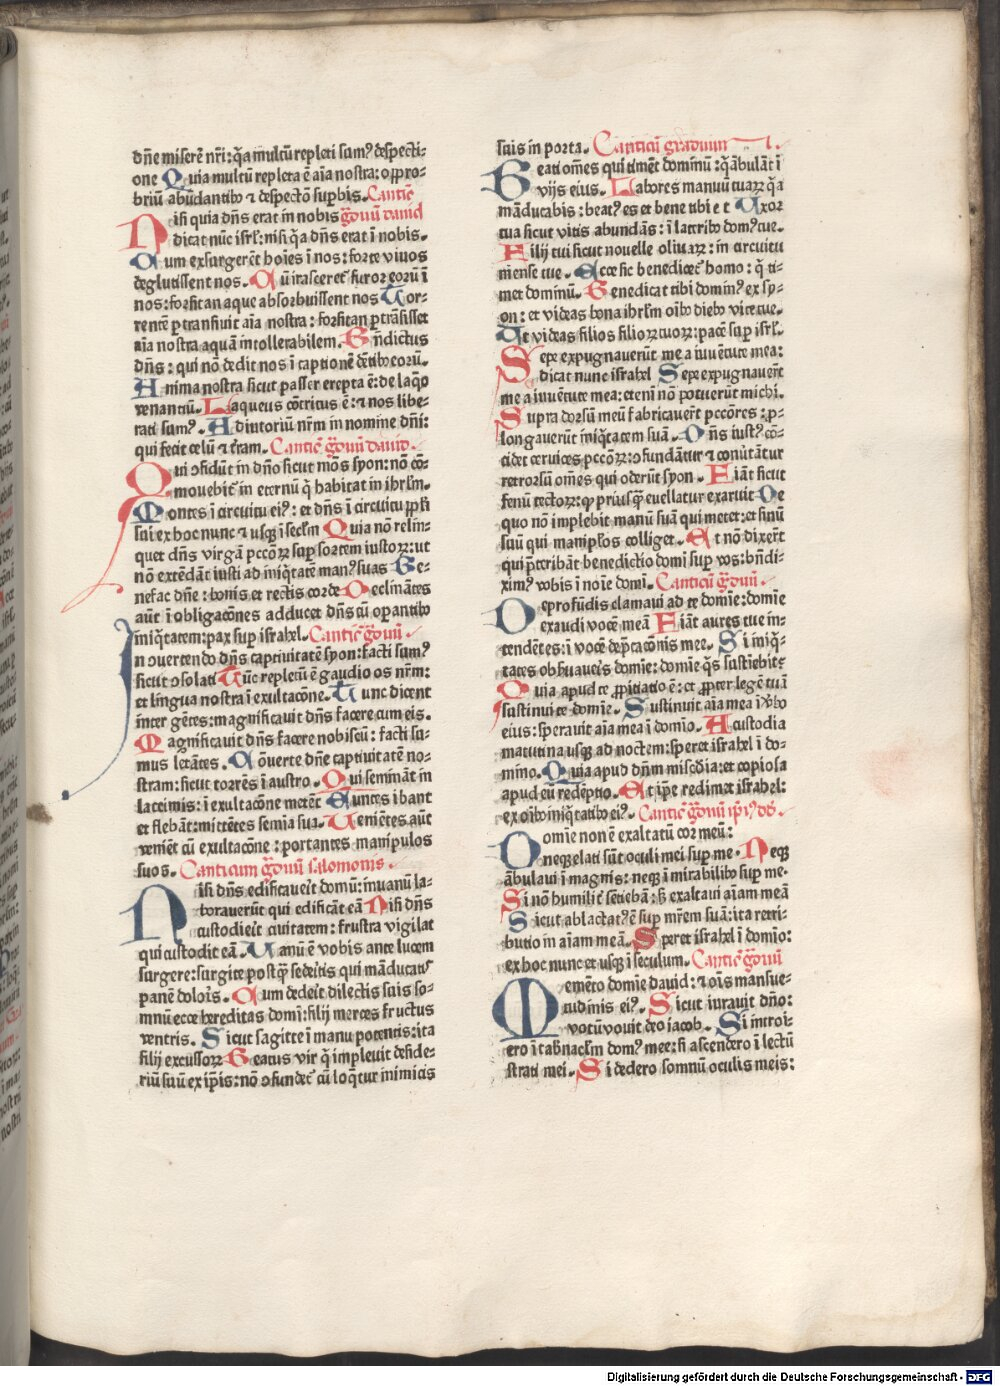 dñe miserē nr̄i: q̄a multū repleti sumꝰ despecti-
one Quia multū repleta ē aīa nostra: opp̄ro-
briū abūdantibꝰ ⁊ despectō suꝑbis. Canticū
Nisi quia dn̄s erat in nobis grāduū dauid
dicat nūc isrl̄: nisi q̄a dn̄s erat ī nobis.
Cum exsurgerēt hoīes ī nos: forte viuos
deglutissent nos. Cū irasceret᷑ furor eorū ī
nos: forsitan aque absorbuissent nos Tor-
rentē ꝑtransiuit aīa nostra: forsitan ꝑtrāsisset
aīa nostra aquā intollerabilem. Bn̄dictus
dn̄s: qui nō dedit nos ī captionē dētibꝰ eorū.
Anima nostra sicut passer erepta ē: de laq̄o
venantiū. Laqueus cōtritus ē: ⁊ nos libe-
rati sumꝰ. Adiutoriū nr̄m in nomine dn̄i:
qui fecit celū ⁊ tr̄am. Canticū grāduū dauid.
Qui ꝯfidūt in dn̄o sicut mōs syon: nō cō-
mouebit᷑ in eternū q̄ habitat in ihrl̄m.
Montes ī circuitu eiꝰ: et dn̄s ī circuitu ppl̄i
sui ex hoc nunc ⁊ usqꝫ ī secl̄m Quia nō relin-
quet dn̄s virgā pccōꝝ suꝑ sortem iustoꝝ: ut
nō extēdāt iusti ad iniq̄tatē manꝰ suas Be-
nefac dn̄e: bonis et rectis corde Declinātes
aūt ī obligacōnes adducet dn̄s cū oꝑantibꝰ
iniq̄tatem: pax suꝑ israhel. Canticū grāduū.
In ꝯuertendo dn̄s captiuitatē syon: facti sumꝰ
sicut ꝯsolati Tūc repletū ē gaudio os nr̄m:
et lingua nostra ī exultacōne. Tunc dicent
inter gētes: magnificauit dn̄s facere cum eis.
Magnificauit dn̄s facere nobiscū: facti su-
mus letātes. Cōuerte dn̄e captiuitatē no-
stram: sicut torrēs ī austro. Qui semināt in
lacrimis: ī exultacōne metēt Euntes ibant
et flebāt: mittētes semīa sua. Venientes aūt
venient cū exultacōne: portantes manipulos
suos. Canticum grāduū salomonis.
Nisi dn̄s edificauerit domū: inuanū la-
borauerūt qui edificāt eā Nisi dn̄s
custodierit ciuitatem: frustra vigilat
qui custodit eā. Vanū ē vobis ante lucem
surgere: surgite postꝙ̄ sederitis qui māducatis
panē doloris. Cum dederit dilectis suis so-
mnū ecce hereditas domī: filij merces fructus
ventris. Sicut sagitte ī manu potentis: ita
filij excussoꝝ Beatus vir q̄ impleuit deside-
riū suū ex ip̄is: nō ꝯfundet᷑ cū loq̄tur inimicis
suis in porta. Canticū graduum
Beati om̄es qui timēt dominū: q̄ ābulāt ī
vijs eius. Labores manuū tuaꝝ q̄a
māducabis: beatꝰ es et bene tibi e t Uxor
tua sicut vitis abundās: ī lateribꝰ domꝰ tue.
Filij tui sicut nouelle oliuaꝝ: in circuitu
mēse tue. Ecce sic benedicet᷑ homo: q̄ ti-
met dominū. Benedicat tibi dominꝰ ex sy-
on: et videas bona ihrl̄m oībꝰ diebꝰ vite tue.
Et videas filios filioꝝ tuoꝝ: pacē suꝑ isrl̄.
Sepe expugnauerūt me a iuuētute mea:
dicat nunc israhel Sepe expugnauerūt
me a iuuētute mea: eteni nō potuerūt michi.
Supra dorsū meū fabricauerūt pccōres: ꝓ-
longauerūt iniq̄tatem suā. Dn̄s iustꝰ cō-
cidet ceruices pccōꝝ: ꝯfundātur ⁊ cōūtātur
retrorsū om̄es qui oderūt syon. Fiāt sicut
fenū tectoꝝ: qꝫ priusꝙ̄ euellatur exaruit De
quo nō impleuit manū suā qui metet: et sinū
suū qui manipulos colliget. Et nō dixerūt
qui p̄teribāt benedictio domī suꝑ vos: bn̄di-
ximꝰ vobis ī noīe domī. Canticū grāduū.
De profūdis clamaui ad te domīe: domīe
exaudi vocē meā Fiāt aures tue in-
tendētes: ī vocē dep̄tacōnis mee. Si iniq̄-
tates obseruaueris domīe: domīe q̄s sustiebit
Quia apud te ꝓpitiatio ē: et ꝓpter legē tuā
sustinui te domīe. Sustinuit aīa mea ī v̄bo
eius: sperauit aīa mea ī domīo. A custodia
matutina usqꝫ ad noctem: speret israhel ī do-
mino. Quia apud dn̄m mīscdīa: et copiosa
apud eū redēptio. Et ip̄e redimet israhel:
ex oībꝰ iniq̄tatibꝰ eiꝰ. Canticū grāduū
Domīe non ē exaltatū cor meū:
neqꝫ elati sūt oculi mei suꝑ me. Neqꝫ
ābulaui ī magnis: neqꝫ ī mirabilibꝰ suꝑ me.
Si nō humilit᷑ sētiebā: sꝫ exaltaui aīam meā
Sicut ablactatꝰ ē suꝑ mr̄em suā: ita retri-
butio in aīam meā. Speret israhel ī domīo:
ex hoc nunc et usqꝫ ī seculum. Canticū grāduū
Memēto domīe dauid: ⁊ oīs mansue-
tudinis eiꝰ. Sicut iurauit dn̄o:
votū vouit deo iacob. Si introi-
ero ī tabnacl̄m domꝰ mee: si ascendero ī lectū
strati mei. Si dedero somnū oculis meis:
Digitalisierung gefördert durch die Deutsche Forschungsgemeinschaft - DFG